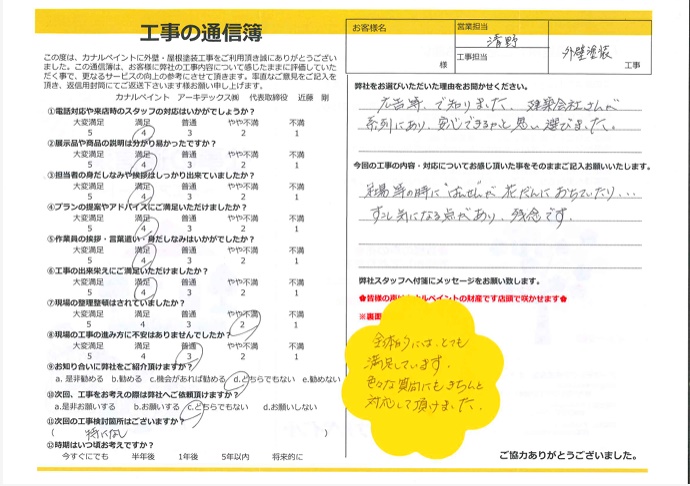 工事の通信簿
この度は、カナルペイントに外壁・屋根塗装工事をご利用頂き誠にありがとうござい
ました。この通信簿は、お客様に弊社の工事内容について感じたままに評価していた
だく事で、更なるサービスの向上の参考にさせて頂きます。率直なご意見をご記入を
頂き、返信用封筒にてご返送下さいます様お願い申し上げます。
カナルペイント アーキテックス㈱ 代表取締役 近藤 剛
①電話対応や来店時のスタッフの対応はいかがでしょうか?
大変満足 満足 普通 やや不満 不満
5 4 3 2 1
②展示品や商品の説明は分かり易かったですか?
大変満足 満足 普通 やや不満 不満
5 4 3 2 1
③担当者の身だしなみや挨拶はしっかり出来ていましたか?
大変満足 満足 普通 やや不満 不満
5 4 3 2 1
④プランの提案やアドバイスにご満足いただけましたか?
大変満足 満足 普通 やや不満 不満
5 4 3 2 1
⑤作業員の挨拶・言葉遣い・身だしなみはいかがでしたか?
大変満足 満足 普通 やや不満 不満
5 4 3 2 1
⑥工事の出来栄えにご満足いただけましたか?
大変満足 満足 普通 やや不満 不満
5 4 3 2 1
⑦現場の整理整頓はされていましたか?
大変満足 満足 普通 やや不満 不満
5 4 3 2 1
⑧現場の工事の進み方に不安はありませんでしたか?
大変満足 満足 普通 やや不満 不満
5 4 3 2 1
⑨お知り合いに弊社をご紹介頂けますか?
a.是非勧める b.勧める c.機会があれば勧める d.どちらでもない e.勧めない
⑩次回、工事をお考えの際は弊社へご依頼頂けますか?
a.是非お願いする b.お願いする c.どちらでもない d.お願いしない
⑪次回の工事検討箇所はございますか?
( 特になし )
⑫時期はいつ頃お考えですか?
今すぐにでも 半年後 1年後 5年以内 将来的に
お客様名
様
営業担当
清野
工事担当
外壁塗装
工事
弊社をお選びいただいた理由をお聞かせください。
広告等、で知りました、建築会社さんが
系列にあり、安心できるかと思い選びました。
今回の工事の内容・対応についてお感じ頂いた事をそのままご記入お願いいたします。
の時に が花だんにおちていたり...
すこし気になる点があり、残念です。
弊社スタッフへ付箋にメッセージをお願い致します。
✿皆様の声はカナルペイントの財産です店頭で咲かせます✿
※裏面
全体的には、とても
満足しています。
色々な質問にもきちんと
対応して頂けました。
ご協力ありがとうございました。